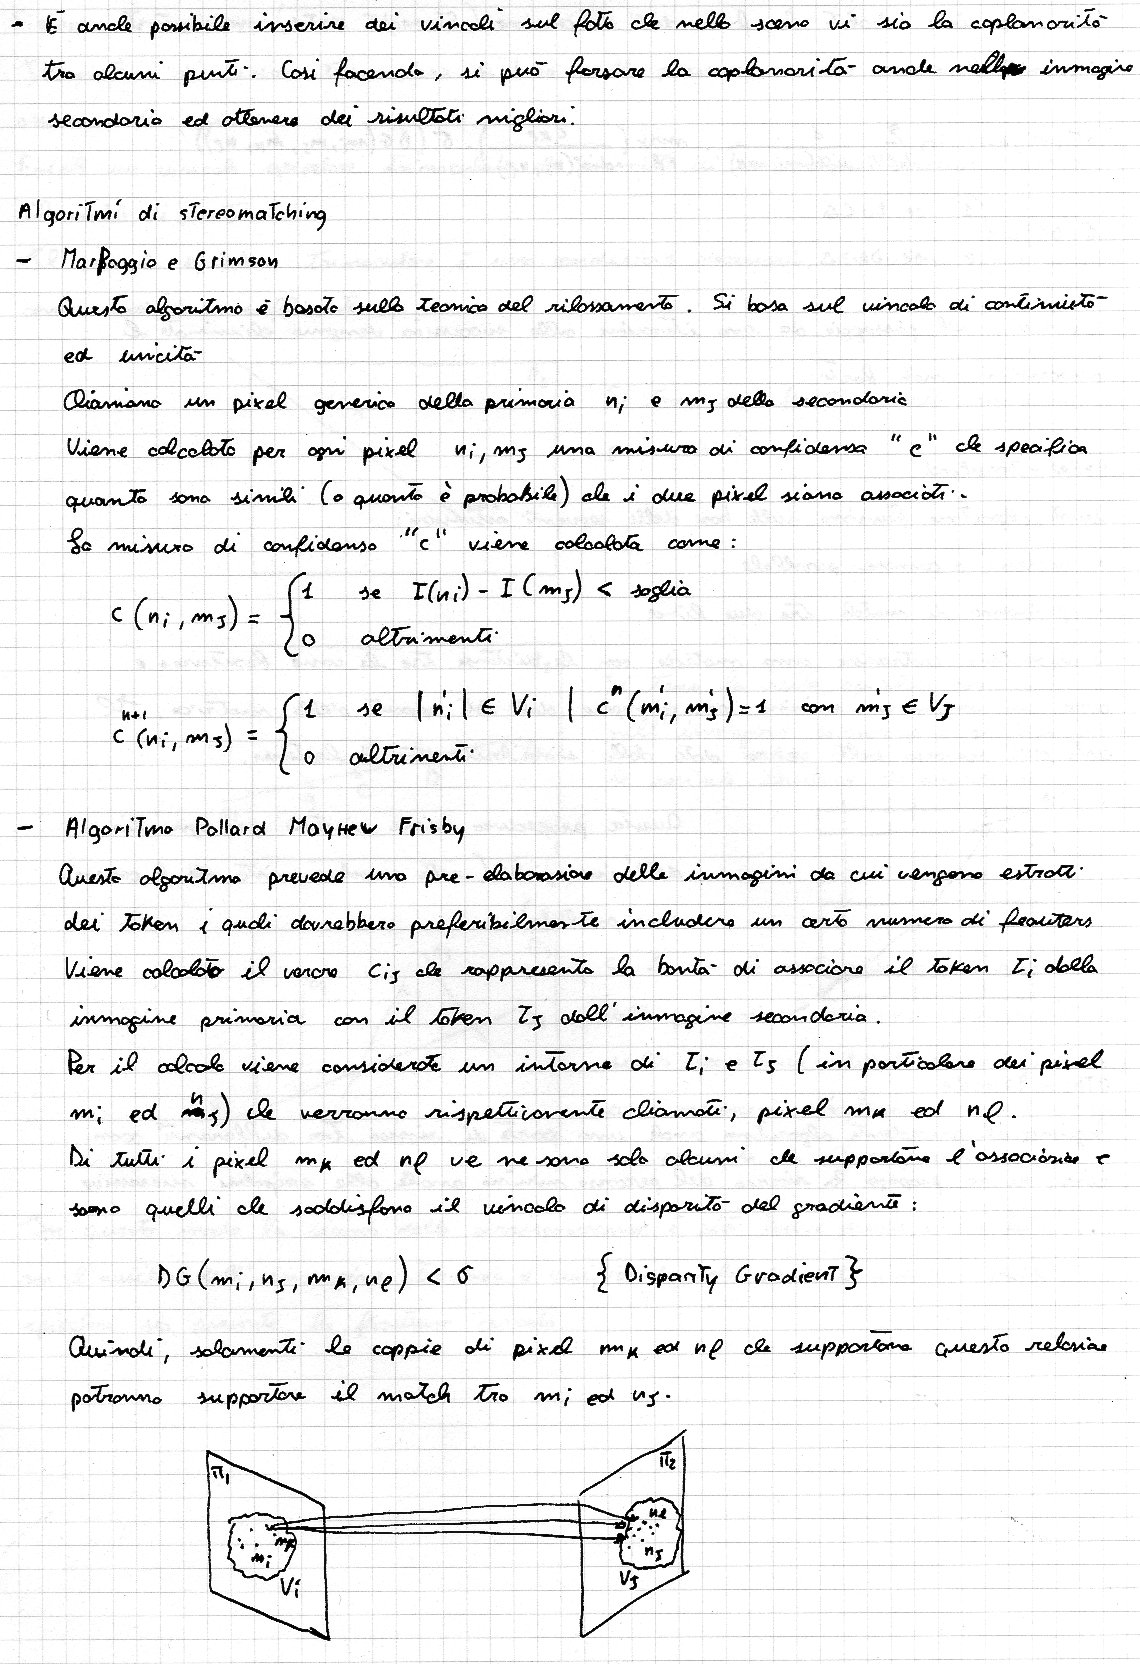 - È anche possibile inserire dei vincoli sul fatto che nella scena vi sia la coplanarità
tra alcuni punti. Così facendo, si può forzare la coplanarità anche nella immagine
secondaria ed ottenere dei risultati migliori.
Algoritmi di stereomatching
- Mar Poggio e Grimson
Questo algoritmo è basato sulla tecnica del rilassamento. Si basa sul vincolo di continuità
ed unicità
Chiamiamo un pixel generico della primaria ni e mj della secondaria
Viene calcolato per ogni pixel ni, mj una misura di confidenza "c" che specifica
quanto sono simili (o quanto è probabile) che i due pixel siano associati.
La misura di confidenza "c" viene calcolata come:
c (ni, mj) = { 1 se I(ni) - I(mj) < soglia
0 altrimenti
c^n+1 (ni, mj) = { 1 se |n'i| ∈ Vi | c^n (m'i, m'j) = 1 con m'j ∈ Vj
0 altrimenti
- Algoritmo Pollard Mayhew Frisby
Questo algoritmo prevede una pre-elaborazione delle immagini da cui vengono estratti
dei token i quali dovrebbero preferibilmente includere un certo numero di feauters
Viene calcolato il Cij che rappresenta la bontà di associare il token Ii dalla
immagine primaria con il token Ij dall'immagine secondaria.
Per il calcolo viene considerato un intorno di Ii e Ij (in particolare dei pixel
mi ed nj) che verranno rispettivamente chiamati, pixel mk ed nl.
Di tutti i pixel mk ed nl ve ne sono solo alcuni che supportano l'associazione e
sono quelli che soddisfano il vincolo di disparità del gradiente:
DG(mi, nj, mk, nl) < σ { Disparity Gradient }
Quindi, solamenti le coppie di pixel mk ed nl che supportano questa relazione
potranno supportare il match tra mi ed nj.
π1 π2
nl
mk
mi nj
Vi Vj